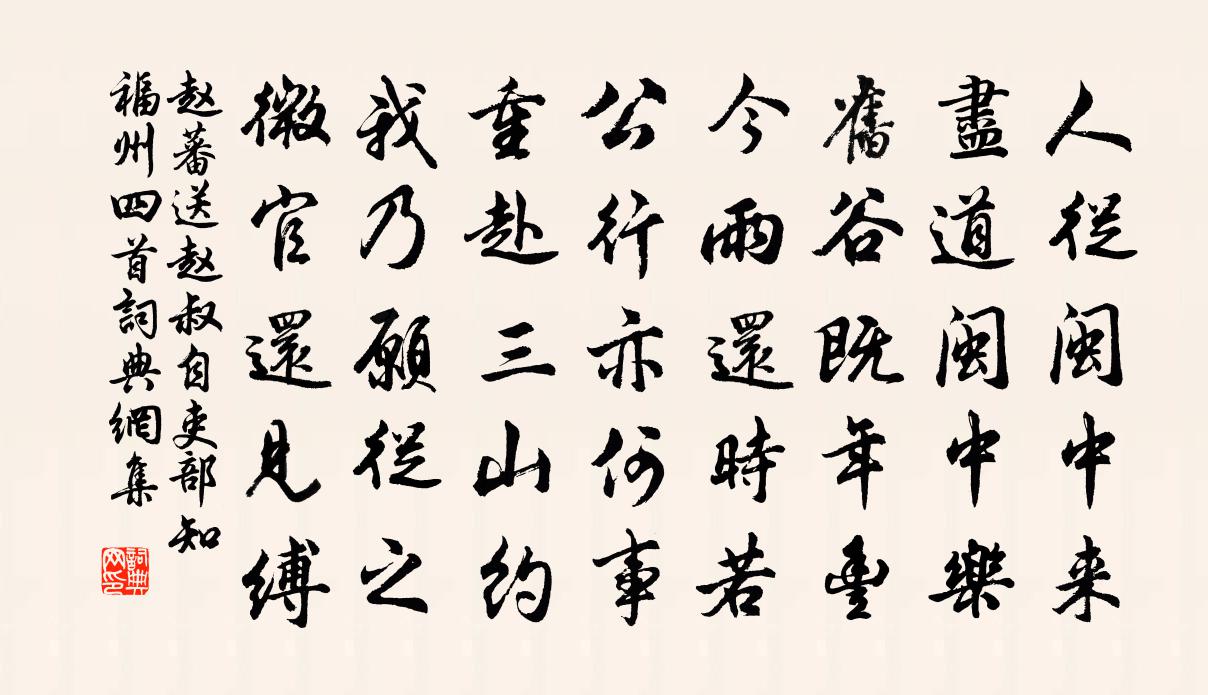 人從闽中来
盡道闽中樂
舊谷既年豊
今雨還時若
公行亦何事
重赴三山約
我乃願從之
微官還見縛
赵蕃送赵叔自吏部知
福州四首詞典網集
詞典网印